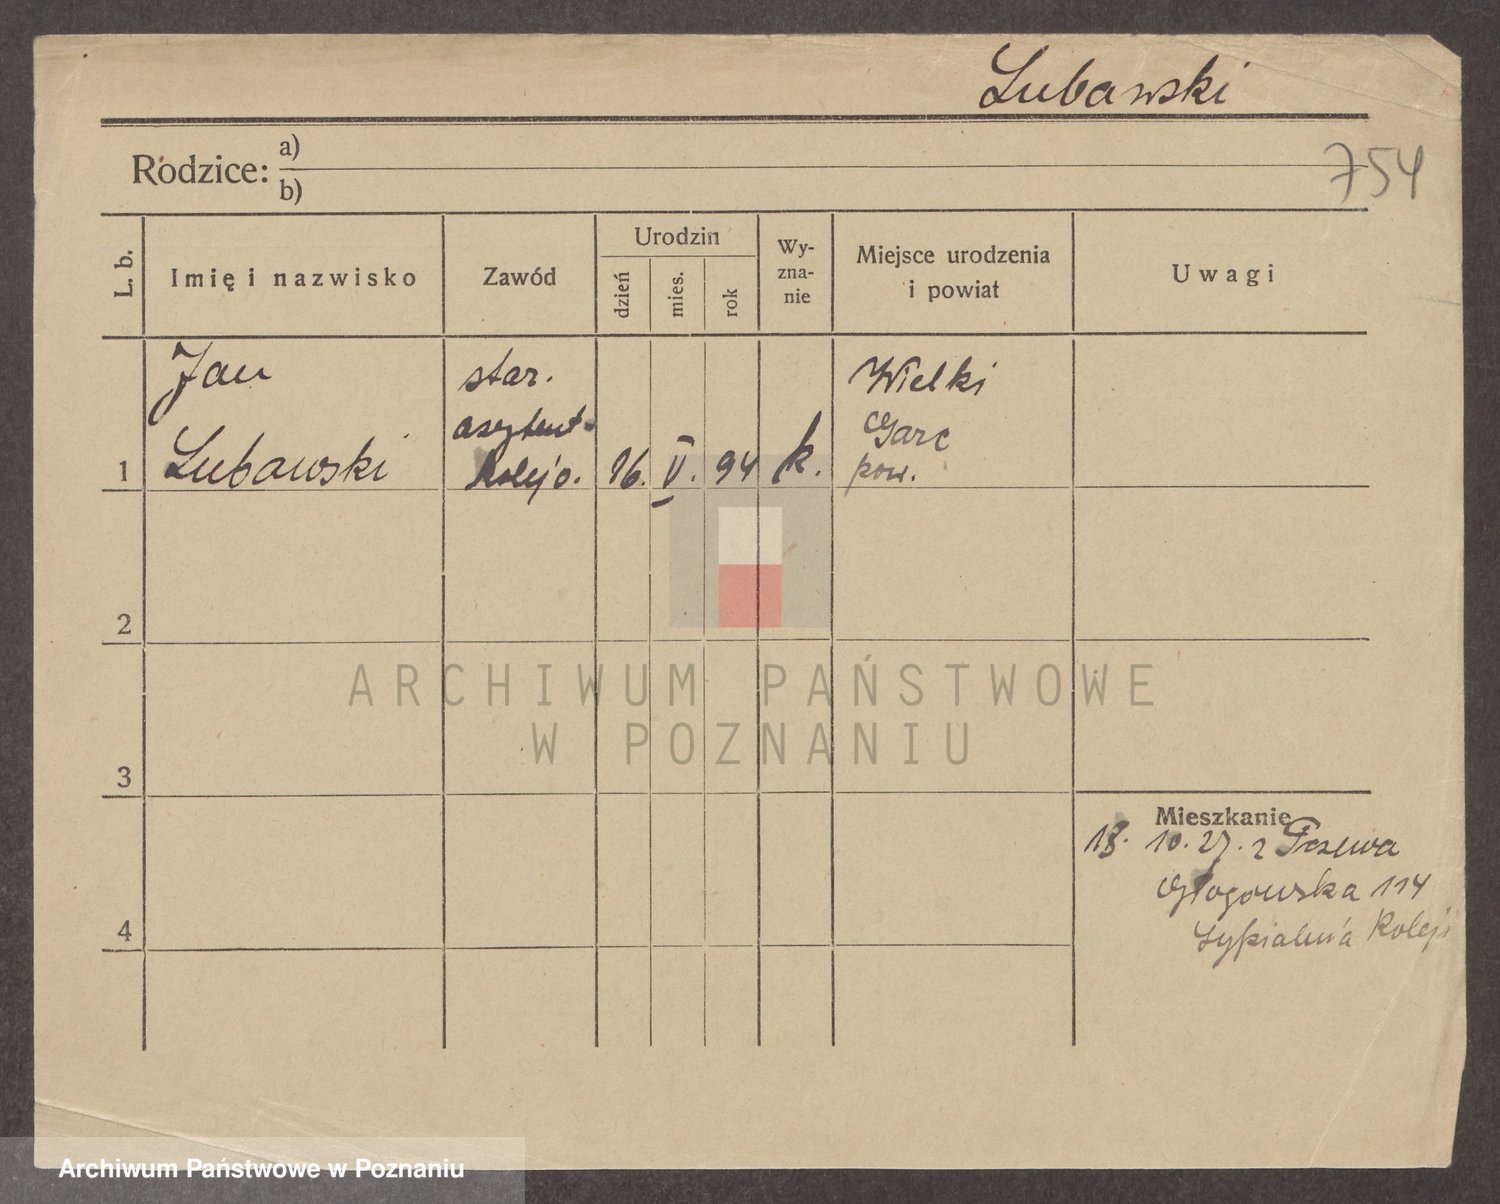 Lubawski
Rodzice: a)
b)
754
L. b.
Imię i nazwisko
Zawód
Urodzin
dzień
mies.
rok
Wy-
zna-
nie
Miejsce urodzenia
i powiat
Uwagi
Jan
Lubawski
star.
asystent
kolejo.
16. V. 94
k.
Wielki
Garc
pow.
1
2
3
4
ARCHIWUM PAŃSTWOWE
W POZNANIU
Mieszkanie
18. 10. 27. z Tczewa
Głogowska 114
sypialnia Koleji
Archiwum Państwowe w Poznaniu